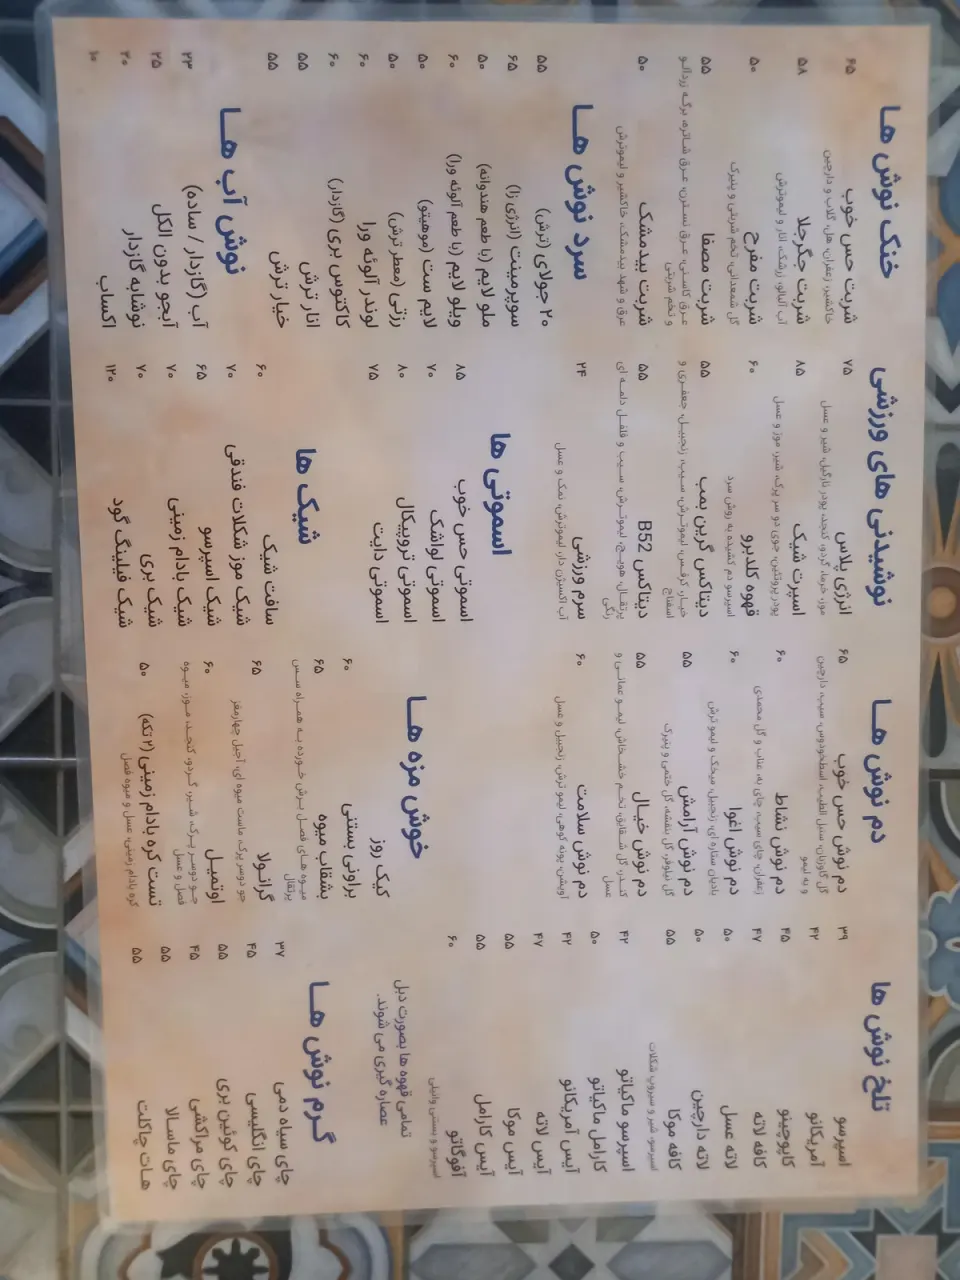 تلخ نوش ها
اسپرسو ۳۹
آمریکانو ۴۲
کاپوچینو ۴۵
کافه لاته ۴۷
لاته عسل ۵۰
لاته دارچین ۵۰
کافه موکا ۵۵
اسپرسو، شیر و سیروپ شکلات
اسپرسو ماکیاتو ۴۲
کارامل ماکیاتو ۵۰
آیس آمریکانو ۴۲
آیس لاته ۴۷
آیس موکا ۵۵
آیس کارامل ۵۵
آفوگاتو ۶۰
اسپرسو و بستنی وانیلی
تمامی قهوه ها بصورت دبل
عصاره گیری می شوند.
گرم نوش ها
چای سیاه دمی ۳۷
چای انگلیسی ۴۵
چای کوئین بری ۵۵
چای مراکشی ۴۵
چای ماسالا ۵۵
هات چاکلت ۵۵
دم نوش ها
دم نوش حس خوب ۶۵
گل گاوزبان، سنبل الطیب، اسطخودوس، سیب، دارچین
و به لیمو
دم نوش نشاط ۶۰
زعفران، چای سیب، چای به، عناب و گل محمدی
دم نوش اغوا ۶۰
بادیان ستاره ای، زنجبیل، میخک و لیمو ترش
دم نوش آرامش ۵۵
گل نیلوفر، گل بنفشه، گل ختمی و پنیرک
دم نوش خیال ۵۵
کندر، گل شقایق، تخم خشخاش، لیمو عمانی و
عسل
دم نوش سلامت ۶۰
آویشن، پونه کوهی، لیمو ترش، زنجبیل و عسل
خوش مزه ها
کیک روز
براونی بستنی ۶۰
بشقاب میوه ۶۵
میوه های فصل برش خورده به همراه سس
پرتقال
گرانولا ۶۵
جو دوسر پرک، ماست میوه ای، آجیل چهارمغز
اوتمیل ۶۰
جو دوسر پرک، شیر، گردو، کنجد، موز، میوه
فصل و عسل
تست کره بادام زمینی (۲ تکه) ۵۰
کره بادام زمینی، عسل و میوه فصل
نوشیدنی های ورزشی
انرژی پلاس ۷۵
موز، خرما، گردو، کنجد، پودر نارگیل، شیر و عسل
اسپرت شیک ۸۵
پودر پروتئین، جوی دو سر پرک، شیر، موز و عسل
قهوه کلدبرو ۶۰
اسپرسو دم کشیده به روش سرد
دیتاکس گرین بمب ۵۵
خیار، کرفس، لیموترش، سیب، زنجبیل، جعفری و
اسفناج
دیتاکس B52 ۵۵
پرتقال، هویج، لیموترش، سیب و فلفل دلمه ای
رنگی
سرم ورزشی ۲۴
آب اکسیژن دار، لیموترش، نمک و عسل
اسموتی ها
اسموتی حس خوب ۸۵
اسموتی لواشک ۷۰
اسموتی تروپیکال ۸۰
اسموتی دابت ۷۵
شیک ها
سافت شیک ۶۰
شیک موز شکلات فندقی ۷۰
شیک اسپرسو ۶۵
شیک بادام زمینی ۷۰
شیک بری ۷۰
شیک فیلینگ گود ۱۲۰
خنک نوش ها
شربت حس خوب ۶۵
خاکشیر، زعفران، هل، گلاب و دارچین
شربت جگرجلا ۵۸
آب آلبالو، زرشک، انار و لیموترش
شربت مفرح ۵۰
گل شمعدانی، تخم شربتی و پنیرک
شربت مصفا ۵۵
عرق کاسنی، عرق نسترن، عرق شاتره، برگه زردآلو
و تخم شربتی
شربت بیدمشک ۵۰
عرق و شهد بیدمشک، خاکشیر و لیموترش
سرد نوش ها
۲۰ جولای (ترش) ۵۵
سوپرمینت (انرژی زا) ۶۵
ملو لایم (با طعم هندوانه) ۵۰
ویلو لایم (با طعم آلوئه ورا) ۶۰
لایم ست (موهیتو) ۵۰
رزتی (معطر ترش) ۵۰
لوندر آلوئه ورا ۶۰
کاکتوس بری (گازدار) ۶۰
انار ترش ۵۵
خیار ترش ۵۵
نوش آب ها
آب (گازدار / ساده) ۲۳
آبجو بدون الکل ۲۵
نوشابه گازدار ۲۰
اکساب ۱۰